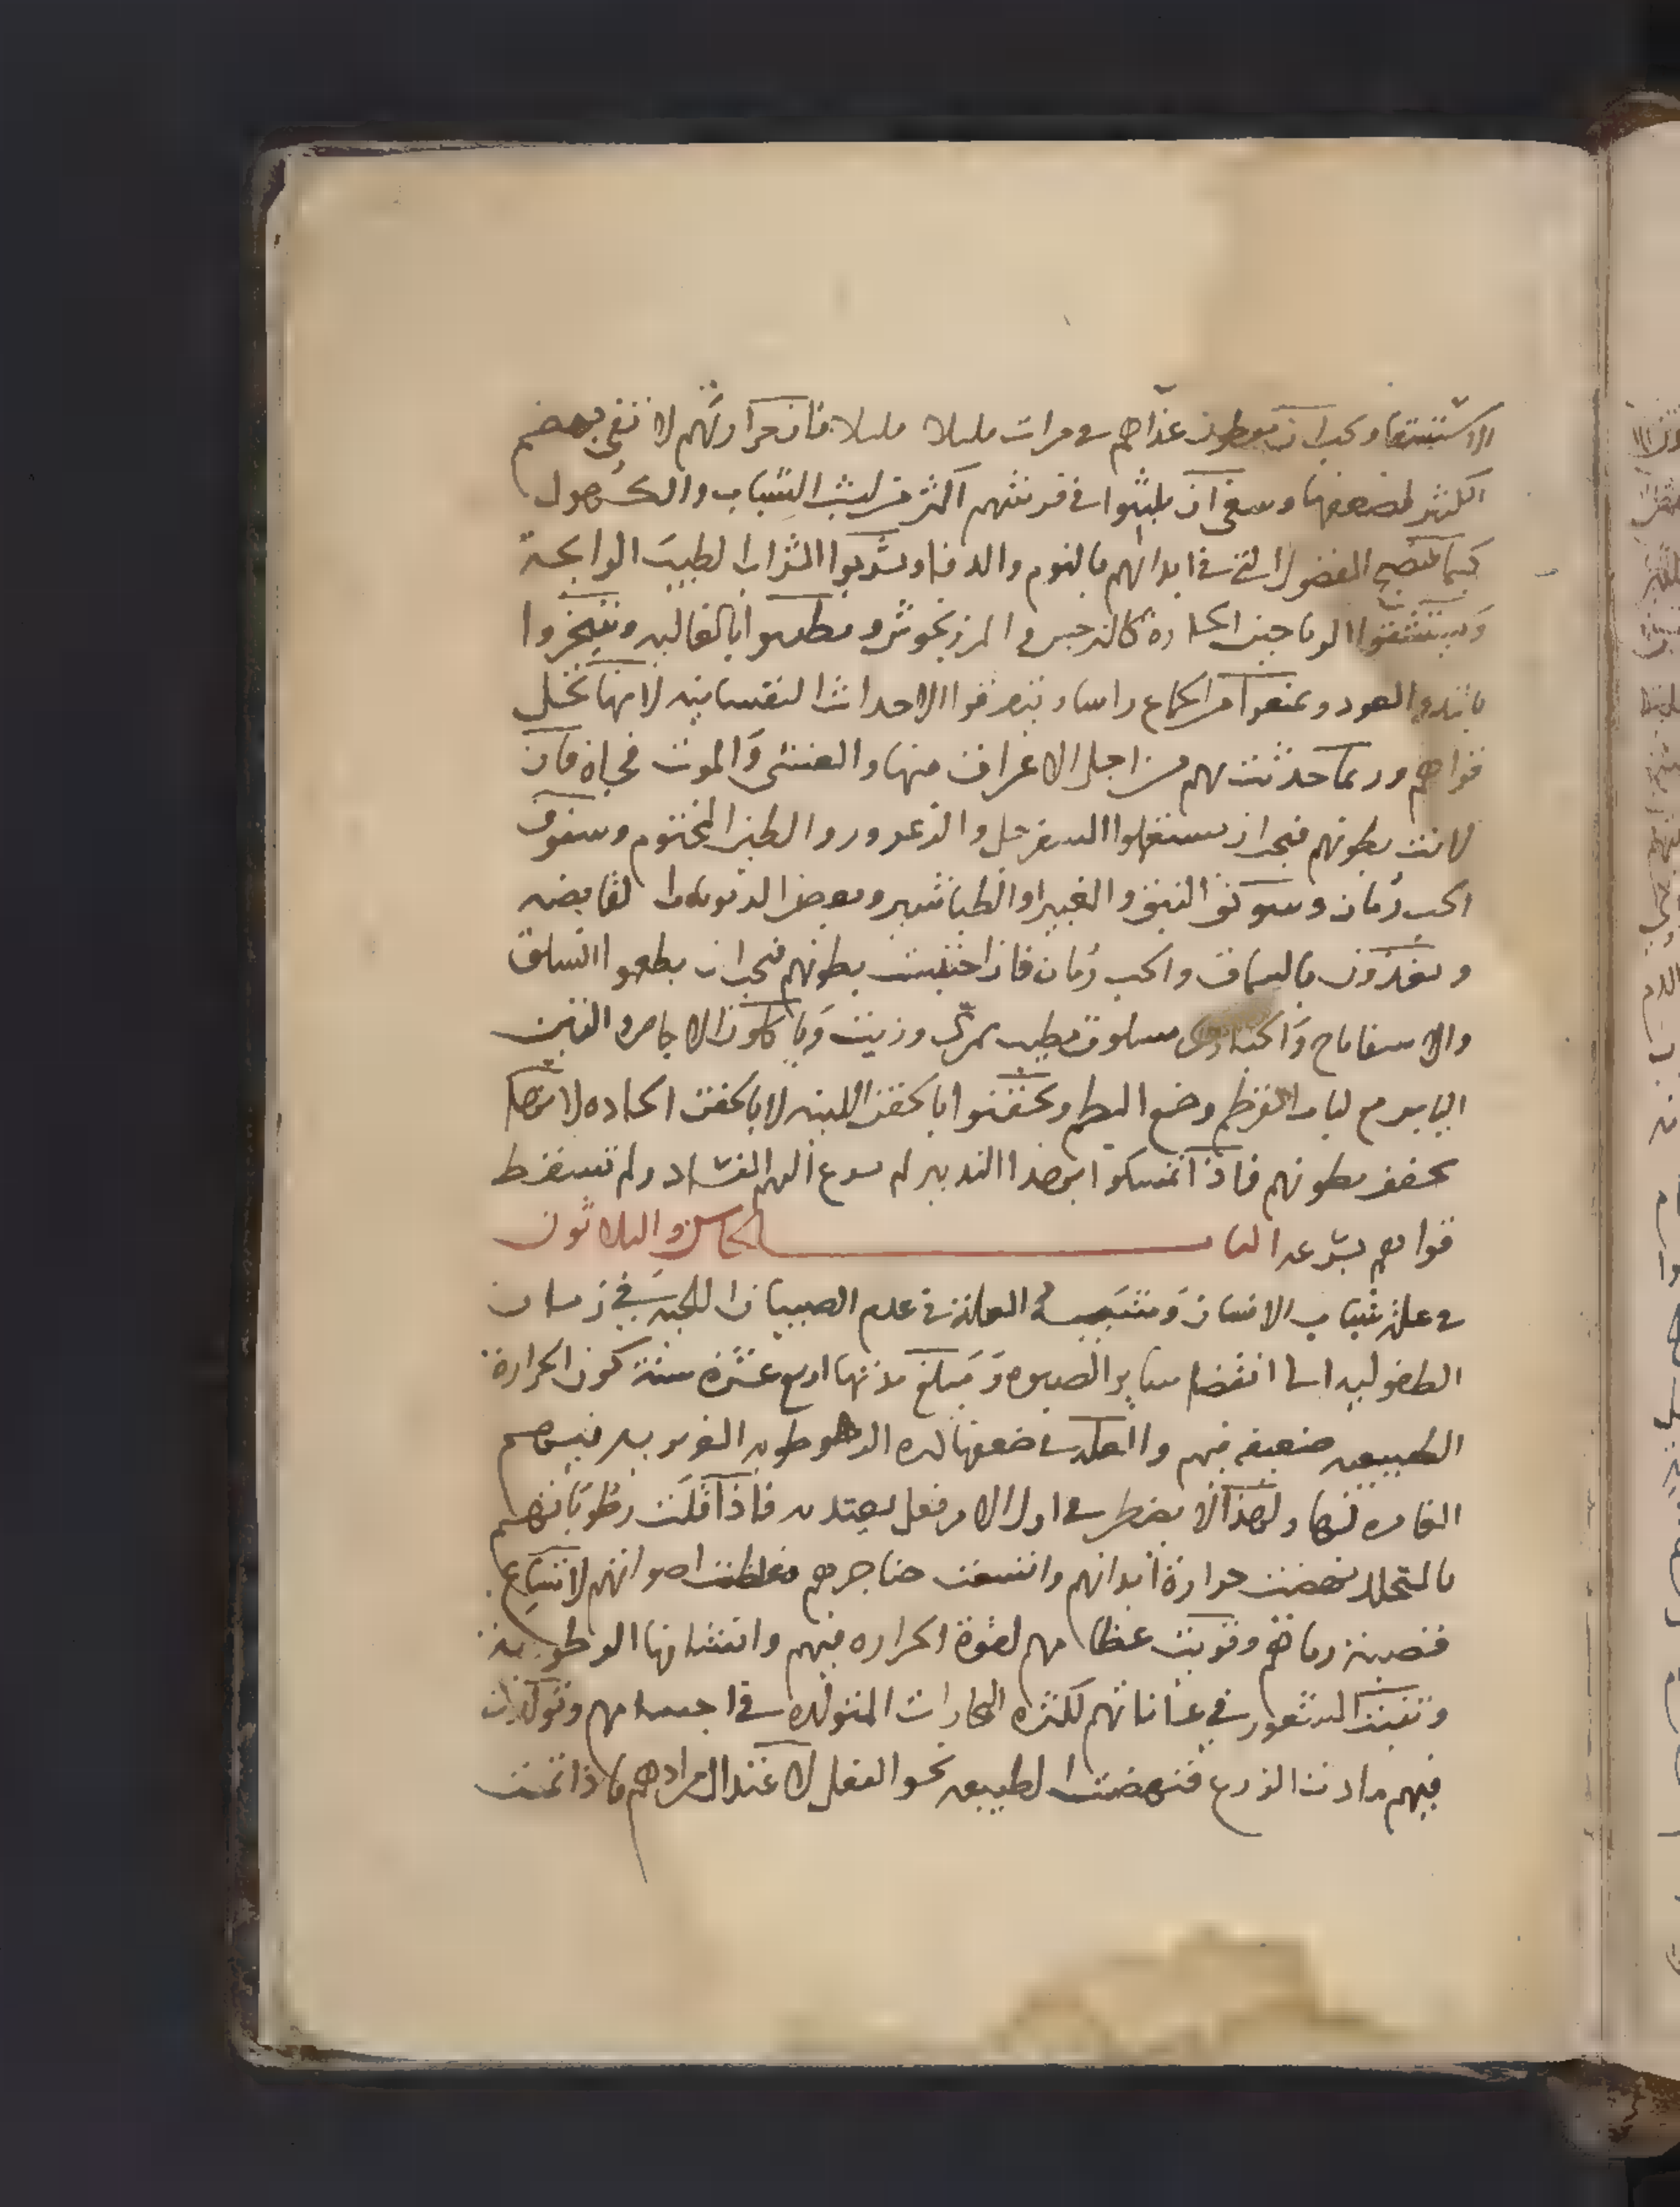 الاستسقا ويجب ان يعطون غذاهم في مرات قليلا قليلا فان حرارتهم لا تفي بهضم
الكثير لضعفها وينبغي ان يلبثوا في فرشهم اكثر من لبث الشباب والكهول
كيما تنضج الفضول التي في ابدانهم بالنوم والدفا ويشربوا الشراب الطيب الرايحة
ويستنشقوا الرياحين الحاده كالنرجس والمرزنجوش ويطيبوا بالغاليه ويتبخروا
بالند والعود ويمنعوا من الجماع راسا والاحداث النفسانيه لانها تخل
قواهم وربما حدثت بهم من اجل الاغراق منها والغشي والموت فجاه فان
لانت بطونهم فيجب ان يستعملوا السفرجل والزعرور والطين المختوم وسفوف
الحب رمان وسويق النبق والغبيرا والطباشير وبعض القابضه
ويغذون بالسماق والحب رمان فاذا احتبست بطونهم فيجب ان يطعموا السلق
والاسفاناخ مسلوق مطيب بمري وزيت وياكلون الاجاص والتين
اليابس مع لباب القرطم وضع البطم ويحقنوا بالحقن اللينه لا بالحقن الحاده لانها
تجفف بطونهم فاذا تمسكوا بهذا التدبير لم يسرع اليهم الفساد ولم تسقط
قواهم بسرعه الباب الخامس والثلاثون
في علة شباب الانسان العلة في عدم الصبيان اللحيه في زمان
الطفوليه الى انقضا سائر الصبوه ومبلغ مدتها اربع عشره سنة كون الحرارة
الطبيعيه ضعيفه فيهم والعله في ضعفها كثره الرطوبه الغريزيه فيهم
الغامره لها ولهذا لا يضطر في اول الامر فعل يعتد به فاذا قلت رطوباتهم
بالتحلل نهضت حرارة ابدانهم واتسعت حناجرهم فغلظت اصواتهم لاتساع
قصبة رياتهم وقويت عظامهم لقوة الحراره فيهم وانتشافها الرطوبه
وتنبت الشعور في عاناتهم لكثره البخارات المتولده في اجسامهم وتولدت
فيهم مادة الزرع فنهضت الطبيعه نحو الفعل لاعتدال مزاجهم فاذا تمت